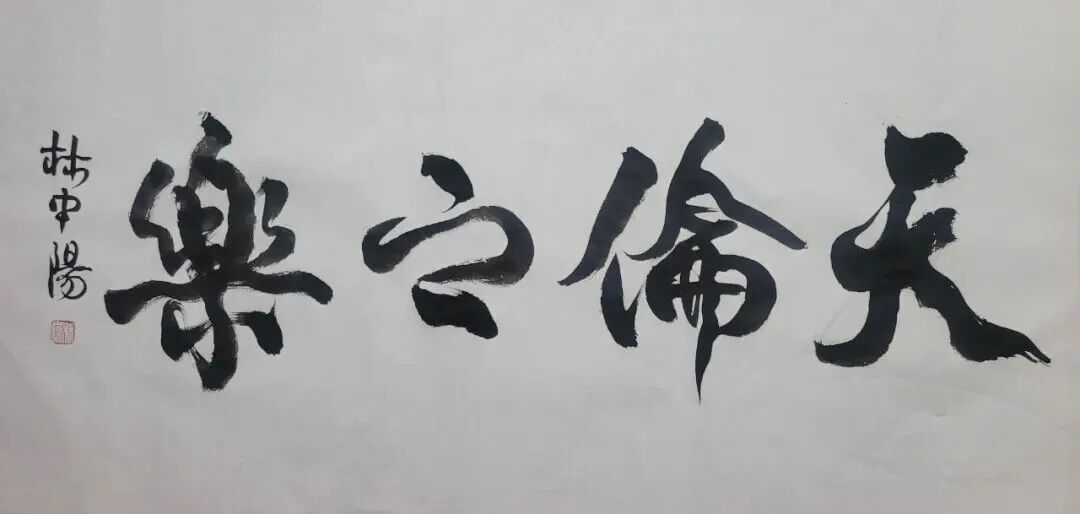 天倫之樂
林中陽